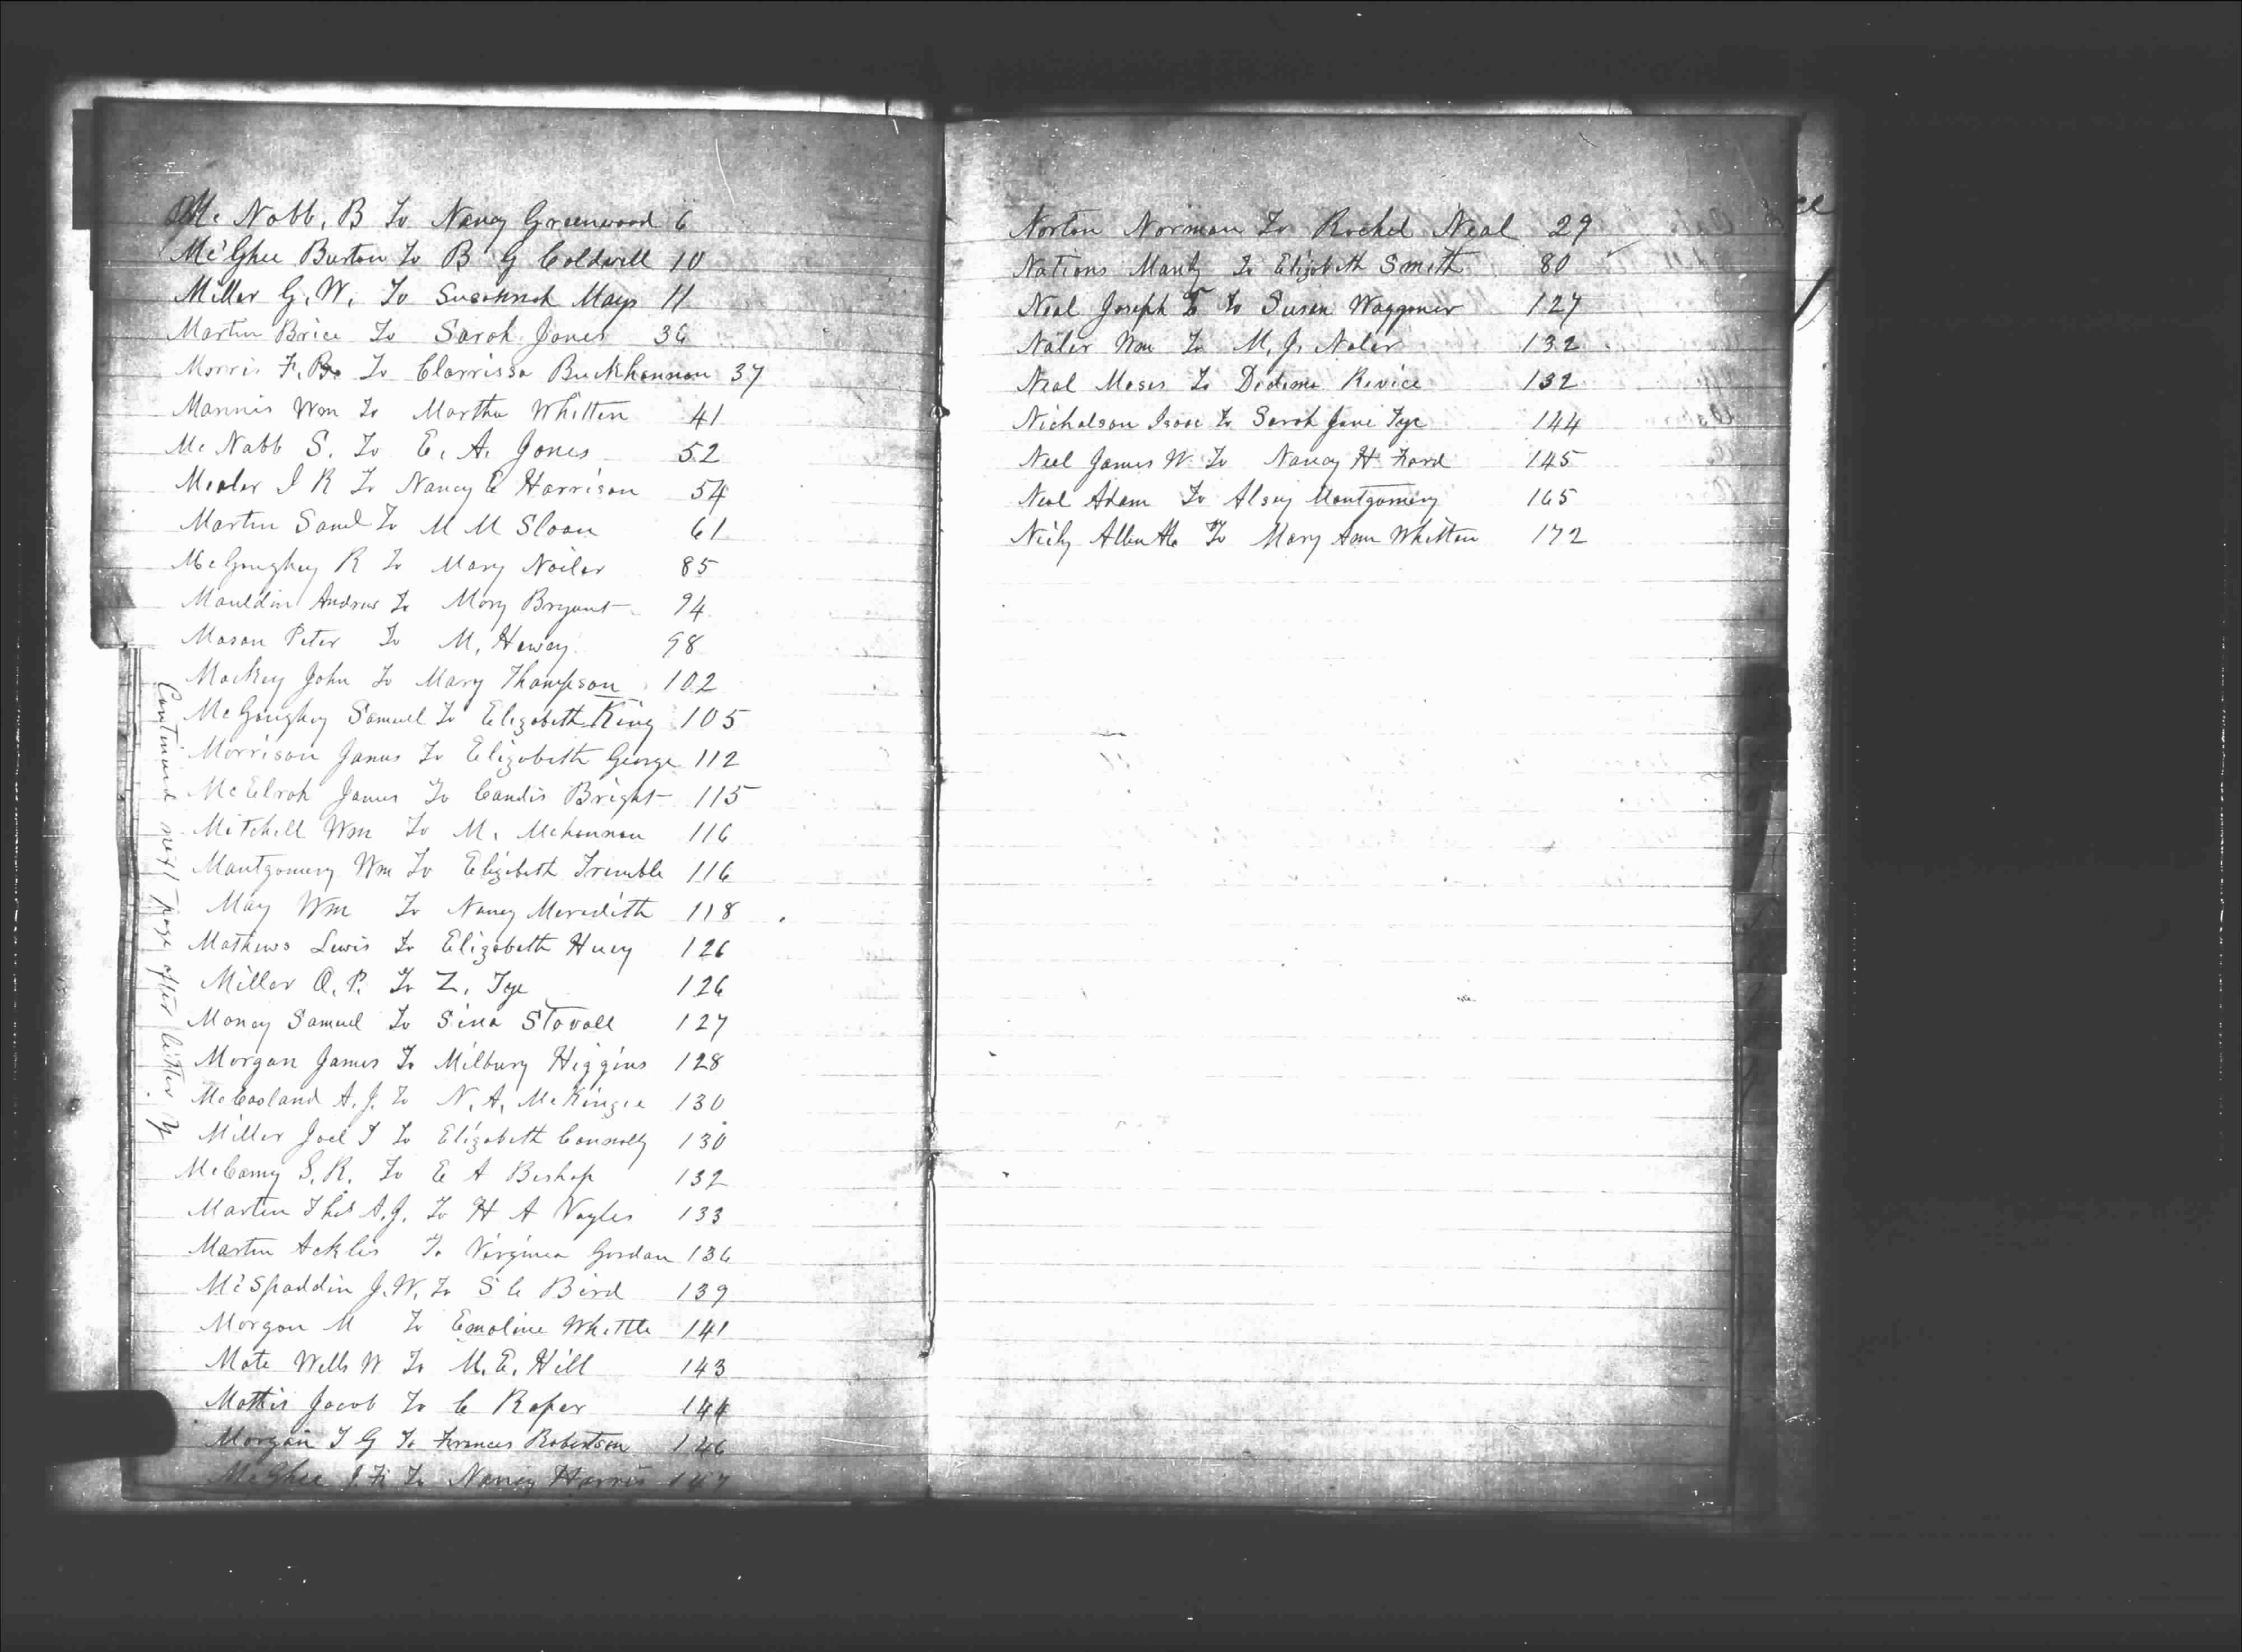 Mc Nabb, B To Nancy Greenwood 6
McGhee Burton To B G Coldwell 10
Miller G. W. To Susannah Mays 11
Martin Brice To Sarah Jones 36
Morris F. B. To Clarrissa Buckhannan 37
Mannis Wm To Martha Whitten 41
Mc Nabb S. To E. A. Jones 52
Mealer I R To Nancy C Harrison 54
Martin Saml To M M Sloan 61
McGaughey R To Mary Nailer 85
Mauldin Andrew To Mary Bryant 94
Mason Peter To M, Haway 98
Mackey John To Mary Thompson 102
McGaughey Samuel To Elizabeth King 105
Morrison James To Elizabeth George 112
McElrah James To Candis Bright 115
Mitchell Wm To M. Mchannan 116
Montgomery Wm To Elizabeth Trimble 116
May Wm To Nancy Meredith 118
Mathews Lewis To Elizabeth Huey 126
Miller O. P. To Z. Tye 126
Money Samuel To Sina Stovall 127
Morgan James To Milbury Higgins 128
McCasland A. J. To N. A. McKinzie 130
Miller Joel T To Elizabeth Connelly 130
McCamy S. R. To E A Bishop 132
Martin Thos A. J. To H A Voyles 133
Martin Acklis To Virginia Gordan 136
McSpaddin J. W. To S C Bird 139
Morgan M To Emaline Whittle 141
Mote Wells W To M. E. Hill 143
Mattis Jacob To C Roper 144
Morgan T G To Frances Robertson 146
McGhee J. F. To Nancy Harris 147
Continued next page after letter Y
Norton Norman To Rachel Neal 29
Nations Manly To Elizabeth Smith 80
Neal Joseph T To Susan Waggoner 127
Naler Wm To M, J, Naler 132
Neal Moses To Didema Revice 132
Nicholson Isaac To Sarah Jane Tye 144
Neal James W. To Nancy H. Ford 145
Neal Adam To Alsey Montgomery 165
Nicely To Mary Ann Whitten 172